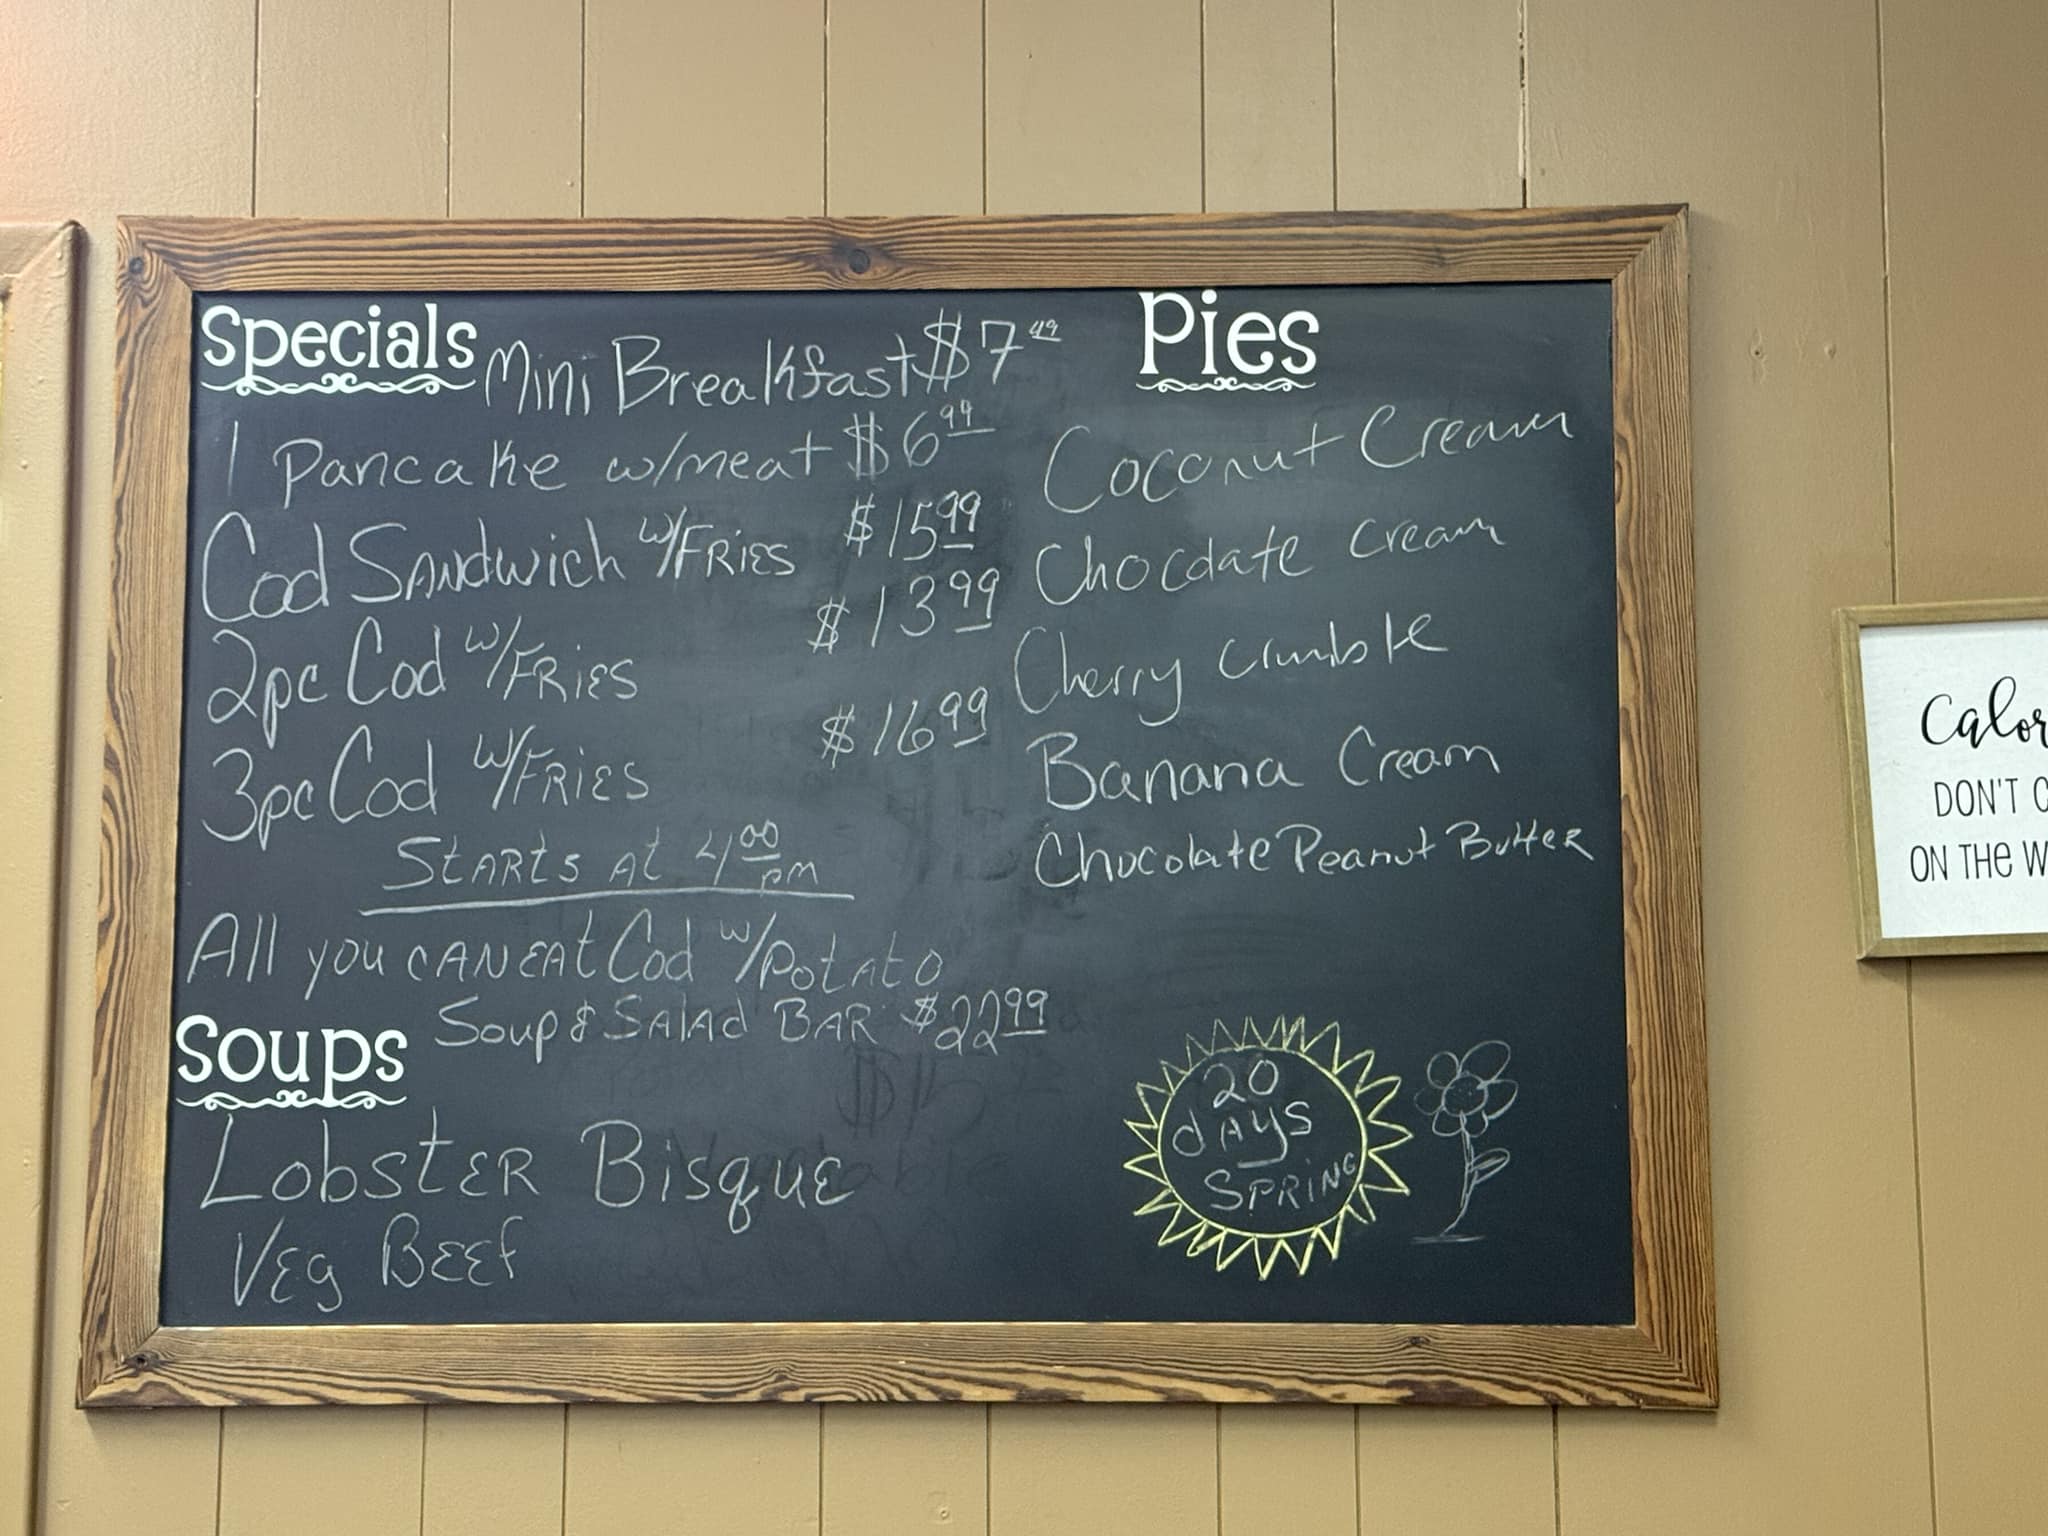 Specials
Mini Breakfast $7.49
1 Pancake w/meat $6.99
Cod Sandwich w/Fries $15.99
2pc Cod w/Fries $13.99
3pc Cod w/Fries $16.99
Starts at 4:00 pm
All you can eat Cod w/Potato
Soup & Salad Bar $22.99
Soups
Lobster Bisque
Veg Beef
Pies
Coconut Cream
Chocolate Cream
Cherry Crumble
Banana Cream
Chocolate Peanut Butter
20
days
Spring
Calor
DON'T C
ON THE W